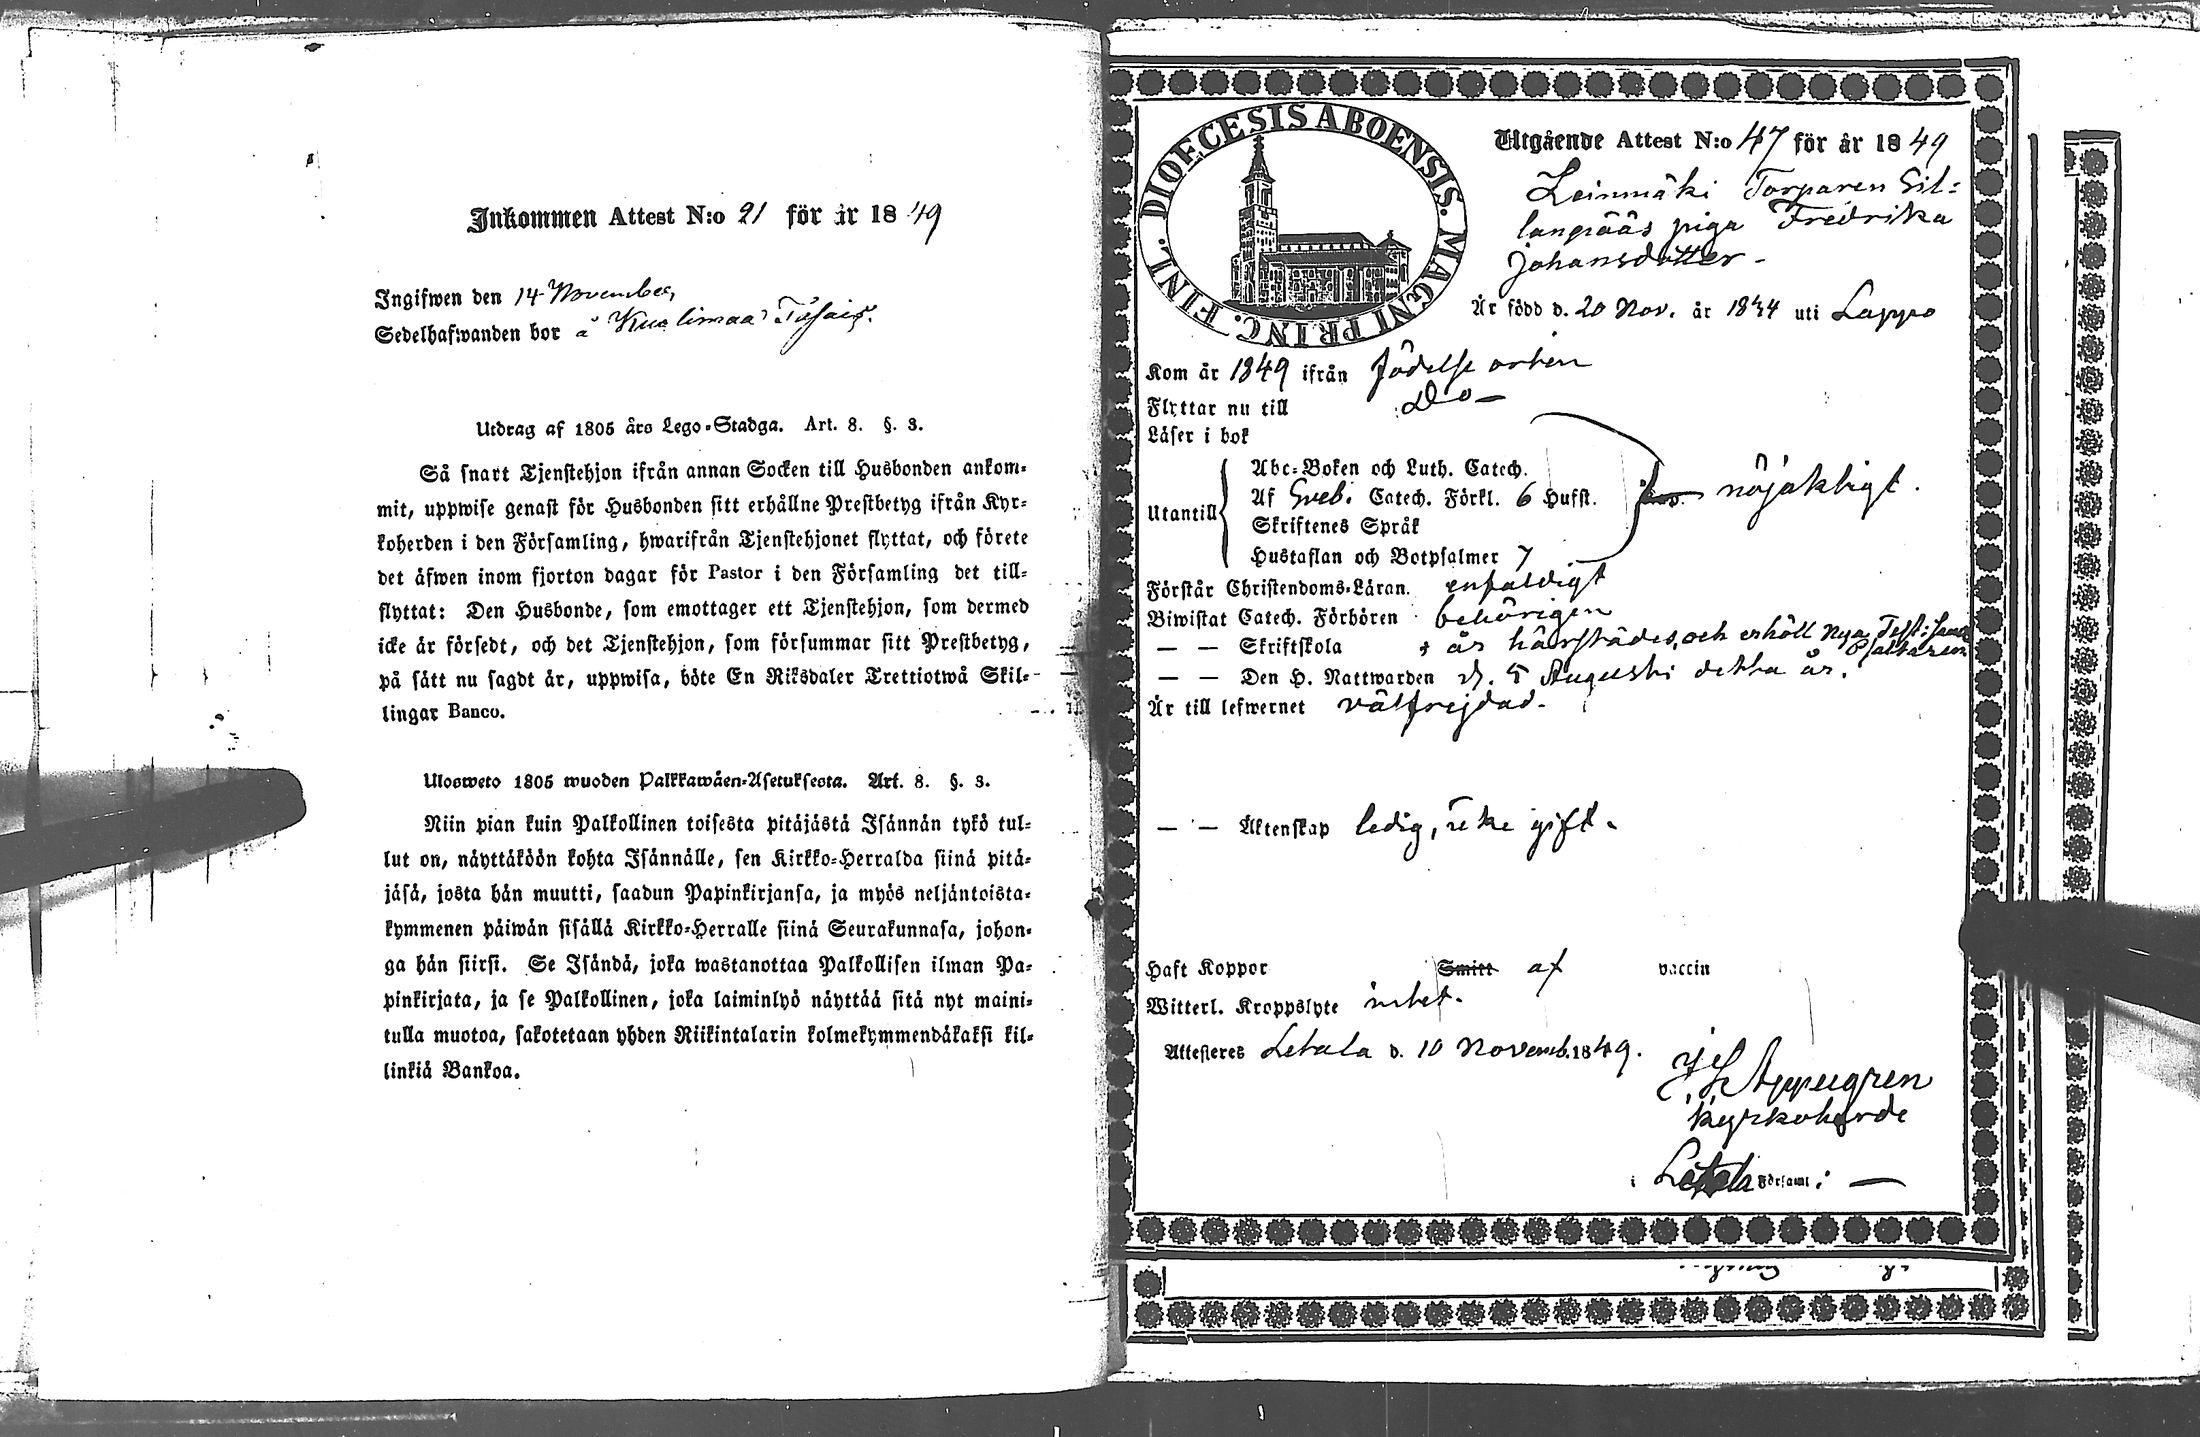 Inkommen Attest N:o 21 för år 1849
Ingifwen den 14 November,
Sedelhafwanden bor å
Utdrag af 1805 års Lego-Stadga. Art. 8. §. 3.
Så snart Tjenstehjon ifrån annan Socken till Husbonden ankom-
mit, uppwise genast för Husbonden sitt erhållne Prestbetyg ifrån Kyr-
koherden i den Församling, hwarifrån Tjenstehjonet flyttat, och förete
det äfwen inom fjorton dagar för Pastor i den Församling det till-
flyttat: Den Husbonde, som emottager ett Tjenstehjon, som dermed
icke är försedt, och det Tjenstehjon, som försummar sitt Prestbetyg,
på sätt nu sagdt är, uppwisa, böte En Riksdaler Trettiotwå Skil-
lingar Banco.
Ulosweto 1805 wuoden Palkkawäen-Asetuksesta. Art. 8. §. 3.
Niin pian kuin Palkollinen toisesta pitäjästä Isännän tykö tul-
lut on, näyttäköön kohta Isännälle, sen Kirkko-Herralda siinä pitä-
jäsä, josta hän muutti, saadun Papinkirjansa, ja myös neljäntoista-
kymmenen päiwän sisällä Kirkko-Herralle siinä Seurakunnasa, johon-
ga hän siirsi. Se Isändä, joka wastanottaa Palkollisen ilman Pa-
pinkirjata, ja se Palkollinen, joka laiminlyö näyttää sitä nyt maini-
tulla muotoa, sakotetaan yhden Riikintalarin kolmekymmendäkaksi kil-
linkiä Bankoa.
DIOECESIS ABOENSIS. MAGNI PRINC. FINL.
Utgående Attest N:o 47 för år 1849
Leinmäki Torparen Sil-
langrääs piga Fredrika
Johansdotter -
Är född d. 20 Nov. år uti Lappo
Kom år 1849 ifrån födelse orten
Flyttar nu till Do -
Läser i bok
Abc-Boken och Luth. Catech.
Utantill Af Sveb: Catech. Förkl. 6 Hufst. nöjaktligt.
Skriftenes Språk
Hustaflan och Botpsalmer 7
Förstår Christendoms-Läran. enfaldigt
Biwistat Catech. Förhören behörigen
— — Skriftskola + år härstädes, och erhöll Nya Test: samt Psaltaren
— — Den H. Nattwarden d. 5 Augusti detta år.
Är till lefwernet välfrejdad.
— — Äktenskap ledig, icke gift.
Haft Koppor Smitt af vaccin
Witterl. Kroppslyte intet.
Attesteres Letala d. 10 Novemb. 1849.
Appelgren
Kyrkoherde
i Letala Församl: —